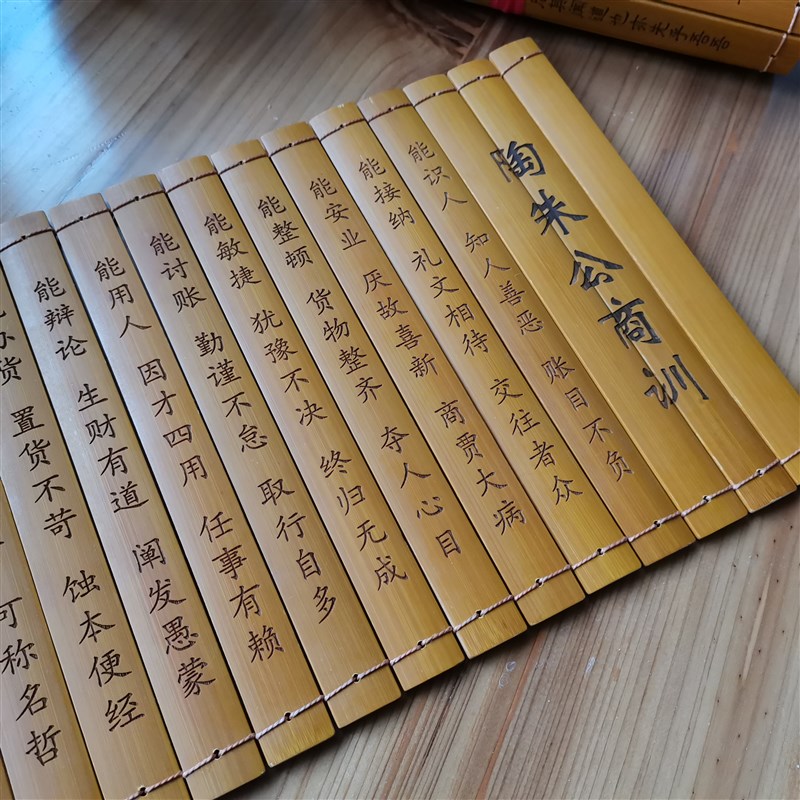 陶朱公商训
能识人 知人善恶 账目不负
能接纳 礼文相待 交往者众
能安业 厌故喜新 商贾大病
能整顿 货物整齐 夺人心目
能敏捷 犹豫不决 终归无成
能讨账 勤谨不怠 取行自多
能用人 因才四用 任事有赖
能辩论 生财有道 阐发愚蒙
办货 置货不苛 蚀本便经
可称名哲
道也
先乎吾吾